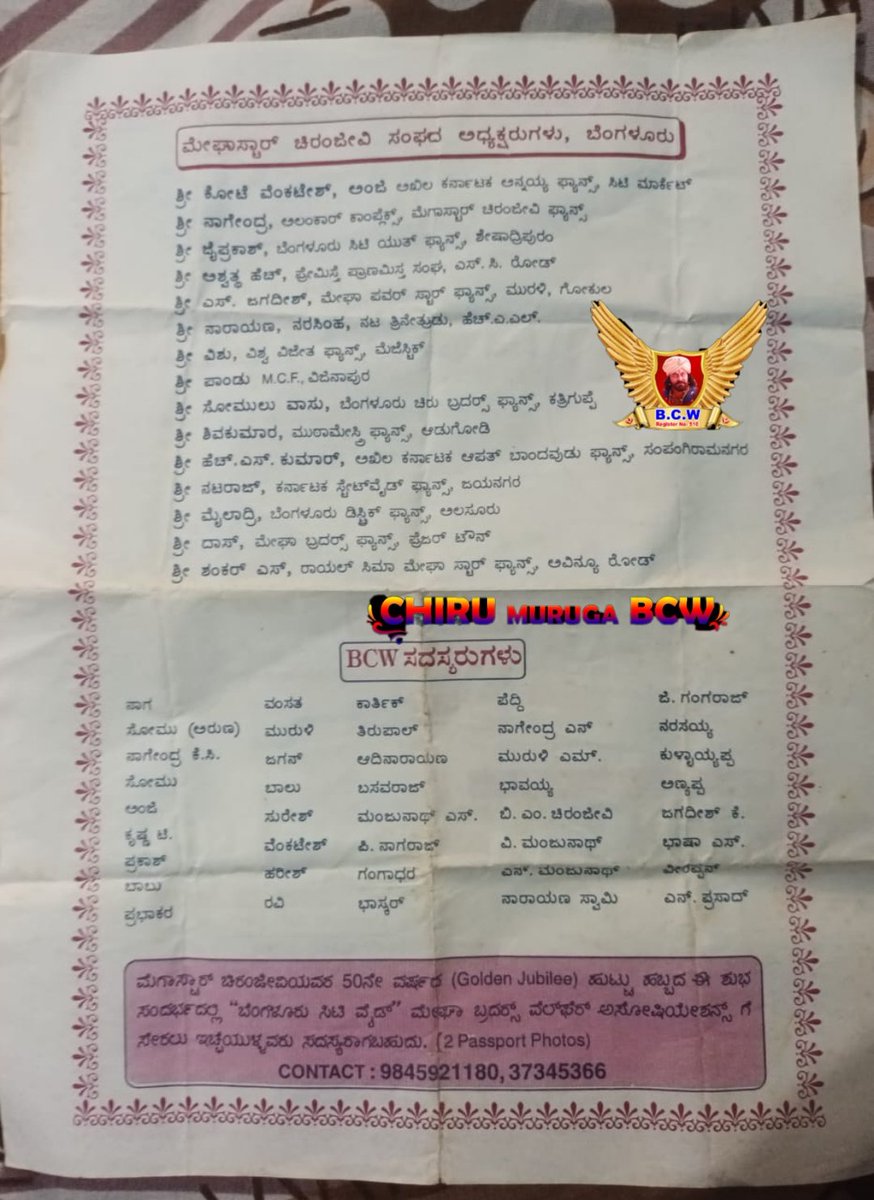 ಮೇಘಾಸ್ಟಾರ್ ಚಿರಂಜೀವಿ ಸಂಘದ ಅಧ್ಯಕ್ಷರುಗಳು, ಬೆಂಗಳೂರು
ಶ್ರೀ ಕೋಟೆ ವೆಂಕಟೇಶ್, ಅಂಜಿ ಅಖಿಲ ಕರ್ನಾಟಕ ಅನ್ನಯ್ಯ ಫ್ಯಾನ್ಸ್, ಸಿಟಿ ಮಾರ್ಕೆಟ್
ಶ್ರೀ ನಾಗೇಂದ್ರ, ಅಲಂಕಾರ್ ಕಾಂಪ್ಲೆಕ್ಸ್, ಮೆಗಾಸ್ಟಾರ್ ಚಿರಂಜೀವಿ ಫ್ಯಾನ್ಸ್
ಶ್ರೀ ಜೈಪ್ರಕಾಶ್, ಬೆಂಗಳೂರು ಸಿಟಿ ಯುತ್ ಫ್ಯಾನ್ಸ್, ಶೇಷಾದ್ರಿಪುರಂ
ಶ್ರೀ ಅಶ್ವತ್ಥ ಹೆಚ್, ಪ್ರೇಮಿಸ್ತೆ ಪ್ರಾಣಮಿಸ್ತ ಸಂಘ, ಎಸ್. ಸಿ. ರೋಡ್
ಶ್ರೀ ಎಸ್. ಜಗದೀಶ್, ಮೇಘಾ ಪವರ್ ಸ್ಟಾರ್ ಫ್ಯಾನ್ಸ್, ಮುರಳಿ, ಗೋಕುಲ
ಶ್ರೀ ನಾರಾಯಣ, ನರಸಿಂಹ, ನಟ ತ್ರಿನೇತ್ರುಡು, ಹೆಚ್.ಎ.ಎಲ್.
ಶ್ರೀ ವಿಶು, ವಿಶ್ವ ವಿಜೇತ ಫ್ಯಾನ್ಸ್, ಮೆಜೆಸ್ಟಿಕ್
ಶ್ರೀ ಪಾಂಡು M.C.F., ವಿಜಿನಾಪುರ
ಶ್ರೀ ಸೋಮುಲು ವಾಸು, ಬೆಂಗಳೂರು ಚಿರು ಬ್ರದರ್ಸ್ ಫ್ಯಾನ್ಸ್, ಕತ್ರಿಗುಪ್ಪೆ
B.C.W
Register No: 510
ಶ್ರೀ ಶಿವಕುಮಾರ, ಮುಠಾಮೇಸ್ತ್ರಿ ಫ್ಯಾನ್ಸ್, ಆಡುಗೋಡಿ
ಶ್ರೀ ಹೆಚ್.ಎಸ್. ಕುಮಾರ್, ಅಖಿಲ ಕರ್ನಾಟಕ ಆಪತ್ ಬಾಂದವುಡು ಫ್ಯಾನ್ಸ್, ಸಂಪಂಗಿರಾಮನಗರ
ಶ್ರೀ ನಟರಾಜ್, ಕರ್ನಾಟಕ ಸ್ಟೇಟ್‌ವೈಡ್ ಫ್ಯಾನ್ಸ್, ಜಯನಗರ
ಶ್ರೀ ಮೈಲಾದ್ರಿ, ಬೆಂಗಳೂರು ಡಿಸ್ಟ್ರಿಕ್ ಫ್ಯಾನ್ಸ್, ಅಲಸೂರು
ಶ್ರೀ ದಾಸ್, ಮೇಘಾ ಬ್ರದರ್ಸ್ ಫ್ಯಾನ್ಸ್, ಫ್ರೆಜರ್ ಟೌನ್
ಶ್ರೀ ಶಂಕರ್ ಎಸ್, ರಾಯಲ್ ಸಿಮಾ ಮೇಘಾ ಸ್ಟಾರ್ ಫ್ಯಾನ್ಸ್, ಅವಿನ್ಯೂ ರೋಡ್
CHIRU MURUGA BCW
BCW ಸದಸ್ಯರುಗಳು
ನಾಗ ವಂಸತ ಕಾರ್ತಿಕ್ ಪೆದ್ದಿ ಜಿ. ಗಂಗರಾಜ್
ಸೋಮು (ಅರುಣ) ಮುರುಳಿ ತಿರುಪಾಲ್ ನಾಗೇಂದ್ರ ಎನ್ ನರಸಯ್ಯ
ನಾಗೇಂದ್ರ ಕೆ.ಸಿ. ಜಗನ್ ಆದಿನಾರಾಯಣ ಮುರುಳಿ ಎಮ್. ಕುಳ್ಳಾಯ್ಯಪ್ಪ
ಸೋಮು ಬಾಲು ಬಸವರಾಜ್ ಭಾವಯ್ಯ ಅಣ್ಯಪ್ಪ
ಅಂಜಿ ಸುರೇಶ್ ಮಂಜುನಾಥ್ ಎಸ್. ಬಿ. ಎಂ. ಚಿರಂಜೀವಿ ಜಗದೀಶ್ ಕೆ.
ಕೃಷ್ಣ ಟಿ. ವೆಂಕಟೇಶ್ ಪಿ. ನಾಗರಾಜ್ ವಿ. ಮಂಜುನಾಥ್ ಭಾಷಾ ಎಸ್.
ಪ್ರಕಾಶ್ ಹರೀಶ್ ಗಂಗಾಧರ ಎನ್. ಮಂಜುನಾಥ್ ವೀರಪ್ಪನ್
ಬಾಬು ರವಿ ಭಾಸ್ಕರ್ ನಾರಾಯಣ ಸ್ವಾಮಿ ಎನ್. ಪ್ರಸಾದ್
ಪ್ರಭಾಕರ
ಮೆಗಾಸ್ಟಾರ್ ಚಿರಂಜೀವಿಯವರ 50ನೇ ವರ್ಷದ (Golden Jubilee) ಹುಟ್ಟು ಹಬ್ಬದ ಈ ಶುಭ
ಸಂದರ್ಭದಲ್ಲಿ "ಬೆಂಗಳೂರು ಸಿಟಿ ವೈಡ್" ಮೇಘಾ ಬ್ರದರ್ಸ್ ವೆಲ್‌ಫೆರ್ ಅಸೋಷಿಯೇಶನ್ಸ್ ಗೆ
ಸೇರಲು ಇಚ್ಛೆಯುಳ್ಳವರು ಸದಸ್ಯರಾಗಬಹುದು. (2 Passport Photos)
CONTACT : 9845921180, 37345366